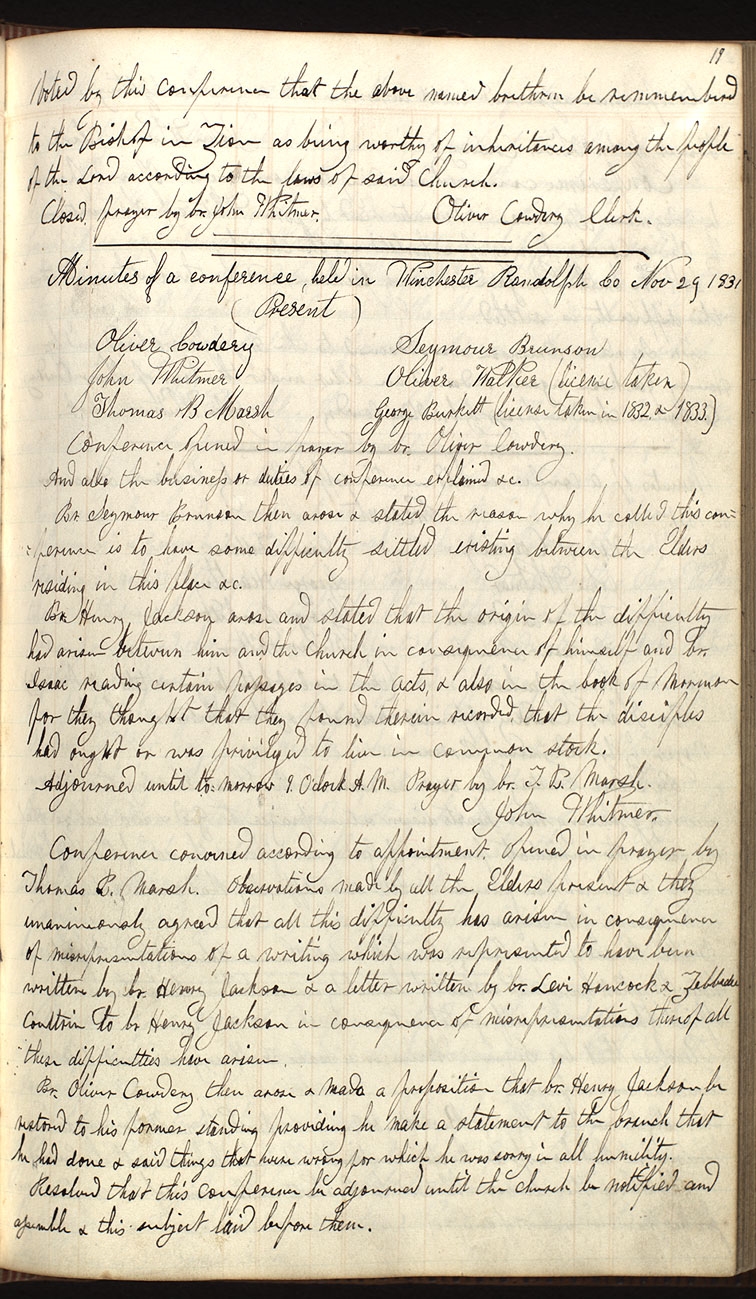 19
Voted by this conference that the above named brethren be remmembered
to the Bishop in Zion as being worthy of inheritances among the people
of the Lord according to the laws of said Church.
Closed. prayer by br. John Whitmer. Oliver Cowdery Clerk.
Minutes of a conference, held in Winchester Randolph Co Nov 29 1831
(Present)
Oliver Cowdery Seymour Brunson
John Whitmer Oliver Walker (licence taken)
Thomas B Marsh George Burkett (license taken in 1832 & 1833.)
Conference opened in prayer by br. Oliver Cowdery.
And also the business or duties of conference explained &c.
Br. Seymour Brunson then arose & stated the reason why he called this con=
=ference is to have some difficulty settled existing between the Elders
residing in this place &c.
Br. Henry Jackson arose and stated that the origin of the difficulty
had arisen between him and the Church in consequence of himself and br.
Isaac reading certain passages in the acts, & also in the book of Mormon
for they thought that they found therein recorded, that the disciples
had ought or was privileged to live in common stock.
Adjourned until to-morrow 9. Oclock A.M. Prayer by br. T. B. Marsh.
John Whitmer.
Conference convened according to appointment. Opened in prayer by
Thomas B. Marsh. Observations made by all the Elders present & they
unanimously agreed that all this difficulty has arisen in consequence
of misrepresentations of a writing which was represented to have been
written by br. Henry Jackson & a letter written by br. Levi Hancock & Zebbedee
Coultrin to br Henry Jackson in consequence of misrepresentations thereof all
these difficulties have arisen.
Br. Oliver Cowdery then arose & made a proposition that br. Henry Jackson be
restored to his former standing providing he make a statement to the branch that
he had done & said things that were wrong for which he was sorry in all humility.
Resolved that this conference be adjourned until the church be notified and
assemble & this subject laid before them.